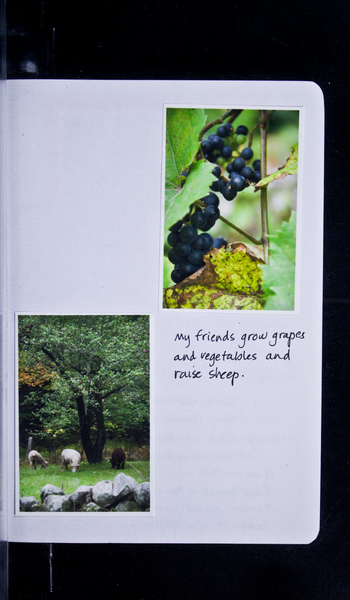 My friends grow grapes
and vegetables and
raise sheep.